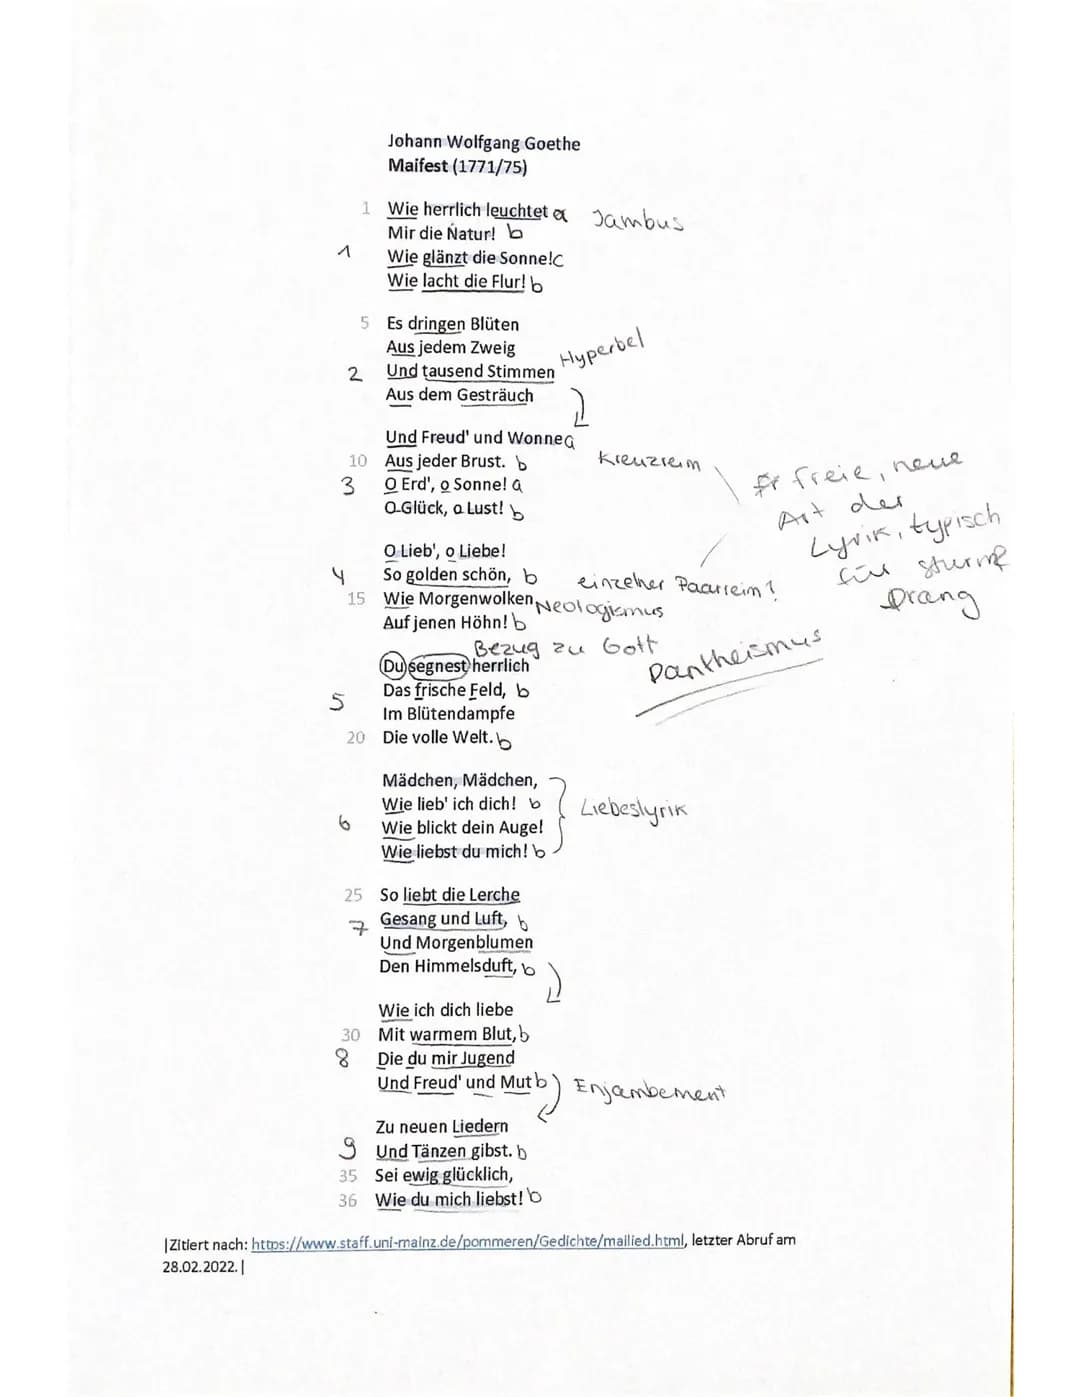 Johann Wolfgang Goethe
Maifest (1771/75)
1 Wie herrlich leuchtet a Jambus
Mir die Natur! b
1 Wie glänzt die Sonne! c
Wie lacht die Flur! b
5 Es dringen Blüten
Aus jedem Zweig
2 Und tausend Stimmen Hyperbel
Aus dem Gesträuch
Und Freud' und Wonne a
10 Aus jeder Brust. b Kreuzreim
3 O Erd', o Sonne! a
O Glück, o Lust! b
freie, neue
Art der
Lyrik, typisch
für Sturm &
Drang
O Lieb', o Liebe!
4 So golden schön, b einzelner Paarreim?
15 Wie Morgenwolken Neologismus
Auf jenen Höhn! b
Bezug zu Gott
Pantheismus
Du segnest herrlich
5 Das frische Feld, b
Im Blütendampfe
20 Die volle Welt. b
Mädchen, Mädchen,
Wie lieb' ich dich! b Liebeslyrik
6 Wie blickt dein Auge!
Wie liebst du mich! b
25 So liebt die Lerche
7 Gesang und Luft, b
Und Morgenblumen
Den Himmelsduft, b
Wie ich dich liebe
30 Mit warmem Blut, b
8 Die du mir Jugend
Und Freud' und Mut b Enjambement
Zu neuen Liedern
9 Und Tänzen gibst. b
35 Sei ewig glücklich,
36 Wie du mich liebst! b
|Zitiert nach: https://www.staff.uni-mainz.de/pommeren/Gedichte/mailied.html, letzter Abruf am
28.02.2022.|